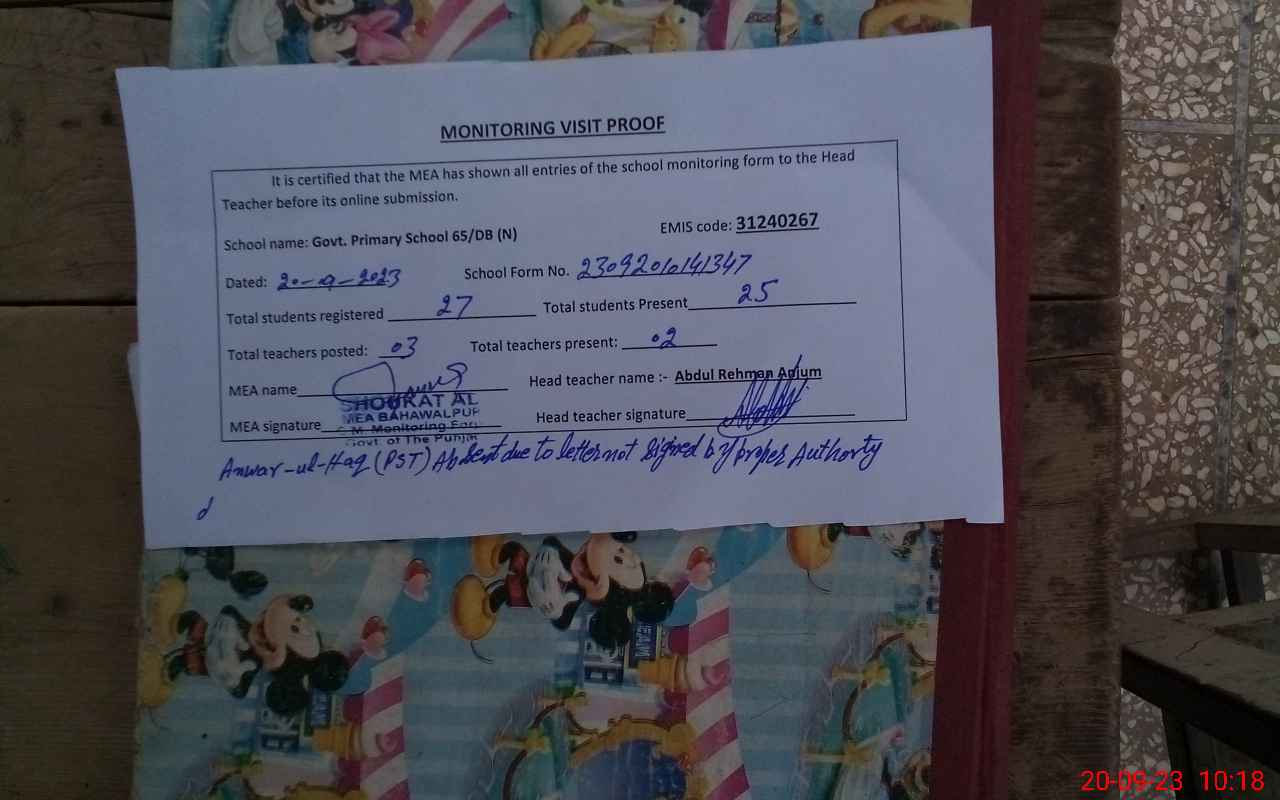 MONITORING VISIT PROOF
It is certified that the MEA has shown all entries of the school monitoring form to the Head
Teacher before its online submission.
School name: Govt. Primary School 65/DB (N) EMIS code: 31240267
Dated: 20-09-2023 School Form No. 23092010141347
Total students registered 27 Total students Present 25
Total teachers posted: 03 Total teachers present: 02
MEA name Head teacher name :- Abdul Rehman Anjum
SHOUKAT AL
MEA BAHAWALPUR
MEA signature Head teacher signature
C.M. Monitoring For
Govt. of The Punjab
Anwar-ul-Haq (PST) Absent due to letter not signed by proper Authority
20-09-23 10:18